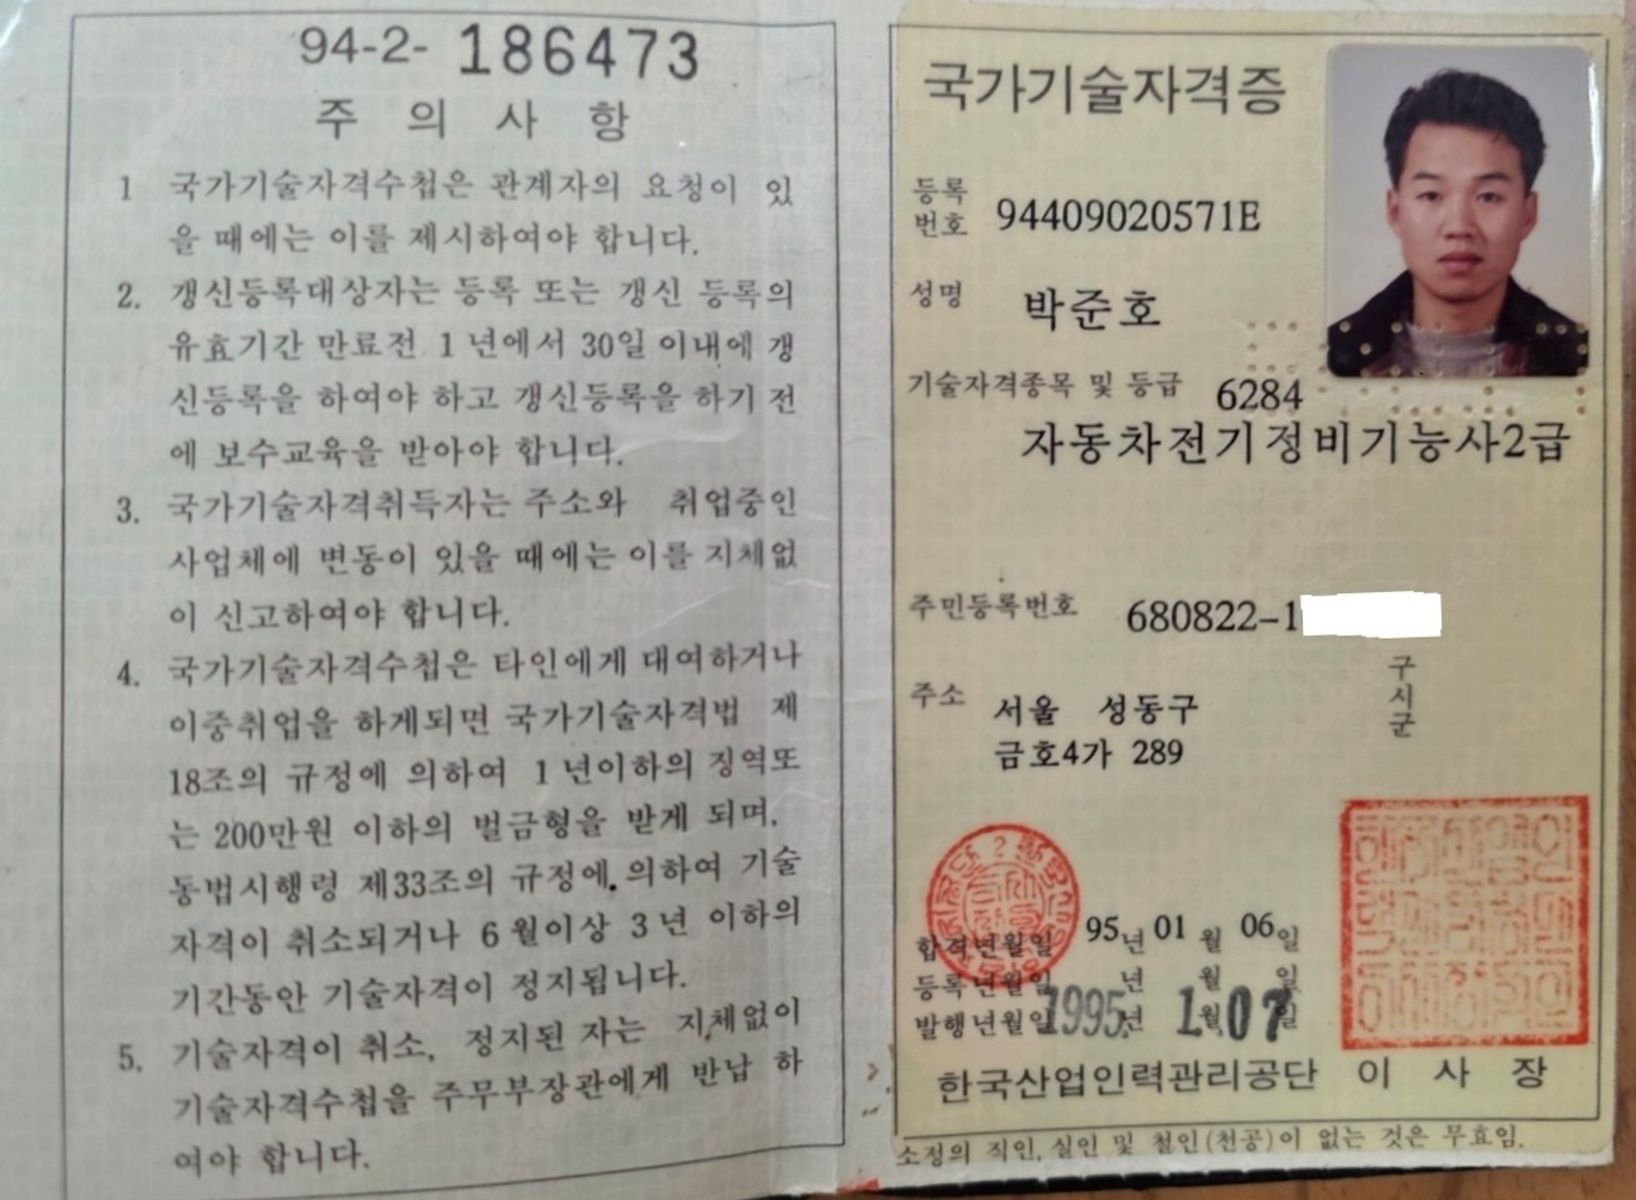 94-2- 186473
주 의 사 항
1 국가기술자격수첩은 관계자의 요청이 있
을 때에는 이를 제시하여야 합니다.
2. 갱신등록대상자는 등록 또는 갱신 등록의
유효기간 만료전 1년에서 30일 이내에 갱
신등록을 하여야 하고 갱신등록을 하기 전
에 보수교육을 받아야 합니다.
3. 국가기술자격취득자는 주소와 취업중인
사업체에 변동이 있을 때에는 이를 지체없
이 신고하여야 합니다.
4. 국가기술자격수첩은 타인에게 대여하거나
이중취업을 하게되면 국가기술자격법 제
18조의 규정에 의하여 1년이하의 징역또
는 200만원 이하의 벌금형을 받게 되며,
동법시행령 제33조의 규정에 의하여 기술
자격이 취소되거나 6월이상 3년 이하의
기간동안 기술자격이 정지됩니다.
5. 기술자격이 취소, 정지된 자는 지체없이
기술자격수첩을 주무부장관에게 반납 하
여야 합니다.
국가기술자격증
등록번호 94409020571E
성명 박준호
기술자격종목 및 등급 6284
자동차전기정비기능사2급
주민등록번호 680822-1
주소 서울 성동구 구시군
금호4가 289
합격년월일 95년 01월 06일
등록년월일 년 월 일
발행년월일 1995년 1월 07일
한국산업인력관리공단 이 사 장
소정의 직인, 실인 및 철인(천공)이 없는 것은 무효임.